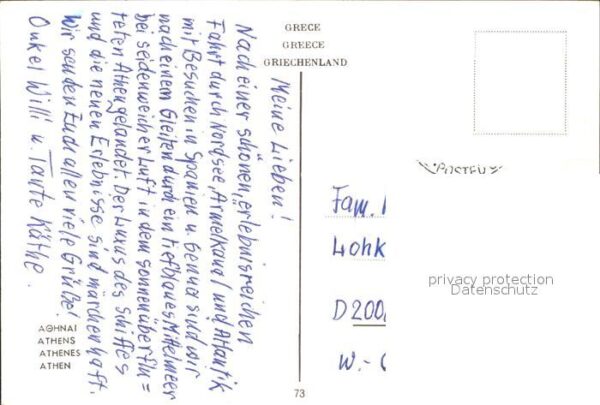 GRECE
GREECE
GRIECHENLAND
Meine Lieben!
Nach einer schönen, erlebnisreichen
Fahrt durch Nordsee, Ärmelkanal und Atlantik
mit Besuchen in Spanien u. Genua sind wir
nach einem Gleiten durch ein tiefblaues Mittelmeer
bei seidenweicher Luft in dem sonnenüberflu=
teten Athen gelandet. Der Luxus des Schiffes
und die neuen Erlebnisse sind märchenhaft.
Wir senden Euch allen viele Grüße!
Onkel Willi u. Tante Käthe.
ΑΘΗΝΑΙ
ATHENS
ATHENES
ATHEN
73
POSTEN
Fam.
Lohk
privacy protection
Datenschutz
D 200
W.-